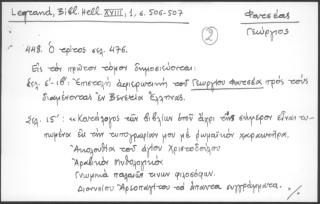 Legrand, Bibl. Hell. XVIII, 1, σ. 506-507
Φατσέας
Γεώργιος
2
448. Ὁ τρίτος σελ. 476.
Εἰς τὸν πρῶτον τόμον δημοσιεύονται:
Σελ. Ἐπιστολὴ ἀφιερωτικὴ τοῦ Γεωργίου Φατσέα πρὸς τοὺς
διαμένοντας ἐν Βενετίᾳ Ἕλληνας.
Σελ. ιε΄: «Κατάλογος τῶν βιβλίων ὁποῦ ἄχρι τῆς σήμερον εἶναι τυ-
πωμένα εἰς τὴν τυπογραφίαν μου μὲ ῥωμαϊκὸν χαρακτῆρα.
Ἀκολουθία τοῦ ἁγίου Χριστοδούλου
Ἀραβικὸν Μυθολογικὸν
Γνωμικὰ παλαιῶν τινων φιλοσόφων.
Διονυσίου Ἀρεοπαγίτου τὰ ἅπαντα συγγράμματα.